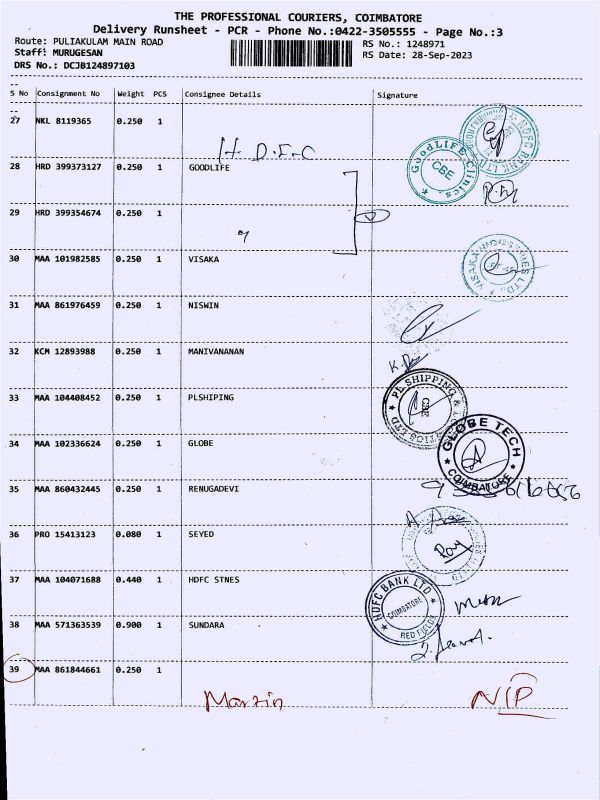 THE PROFESSIONAL COURIERS, COIMBATORE
Delivery Runsheet - PCR - Phone No.:0422-3505555 - Page No.:3
Route: PULIAKULAM MAIN ROAD
RS No.: 1248971
Staff: MURUGESAN
RS Date: 28-Sep-2023
DRS No.: DCJB124897103
S No Consignment No Weight PCS Consignee Details Signature
27 NKL 8119365 0.250 1
H.D.F.C
28 HRD 399373127 0.250 1 GOODLIFE
GOODLIFE Clinics
CBE
29 HRD 399354674 0.250 1
30 MAA 101982585 0.250 1 VISAKA
31 MAA 861976459 0.250 1 NISWIN
32 KCM 12893988 0.250 1 MANIVANANAN
33 MAA 104408452 0.250 1 PLSHIPING
PL SHIPPING &
CBE
34 MAA 102336624 0.250 1 GLOBE
GLOBE TECH
COIMBATORE
35 MAA 860432445 0.250 1 RENUGADEVI
36 PRO 15413123 0.080 1 SEYED
37 MAA 104071688 0.440 1 HDFC STNES
HDFC BANK LTD
COIMBATORE
RED FIELDS
38 MAA 571363539 0.900 1 SUNDARA
39 MAA 861844661 0.250 1
Martin
NIP